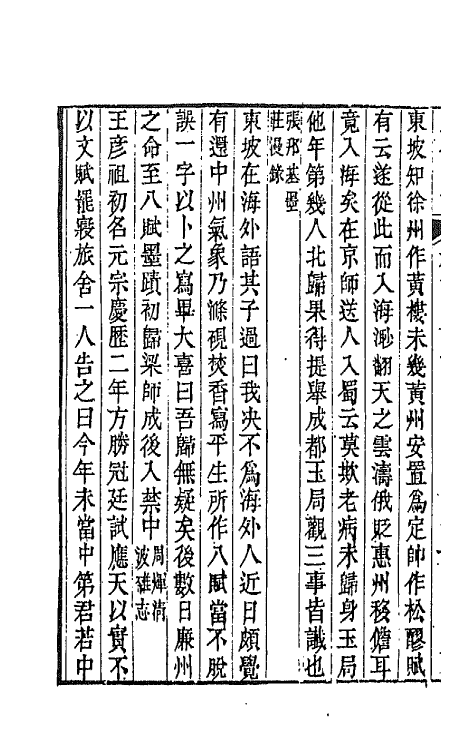 東坡知徐州作黃樓未幾黃州安置爲定帥作松醪賦
有云遂從此而入海渺翻天之雲濤俄貶惠州移儋耳
竟入海矣在京師送人入蜀云莫欺老病未歸身玉局
他年第幾人北歸果得提舉成都玉局觀三事皆讖也
張邦基墨
莊漫錄
東坡在海外語其子過曰我决不爲海外人近日頗覺
有還中州氣象乃滌硯焚香寫平生所作八賦當不脫
誤一字以卜之寫畢大喜曰吾歸無疑矣後數日廉州
之命至八賦墨蹟初歸梁師成後入禁中
周煇淸
波雜志
王彦祖初名元宗慶歷二年方勝冠廷試應天以實不
以文賦罷寢旅舍一人告之曰今年未當中第君若中